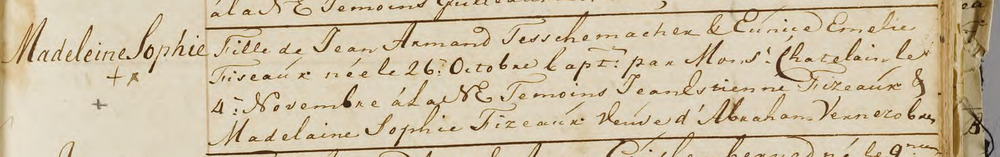 àla NE Temoins
Madeleine Sophie
Fille de Jean Armand Tesschemacher & Eunice Emelie
Fiseaux née le 26: Octobre bapt: par Mons: Chatelain le
4: Novembre àla NE Temoins Jean Etienne Fizeaux &
Madelaine Sophie Fizeaux Veuve d'Abraham Vernezobres